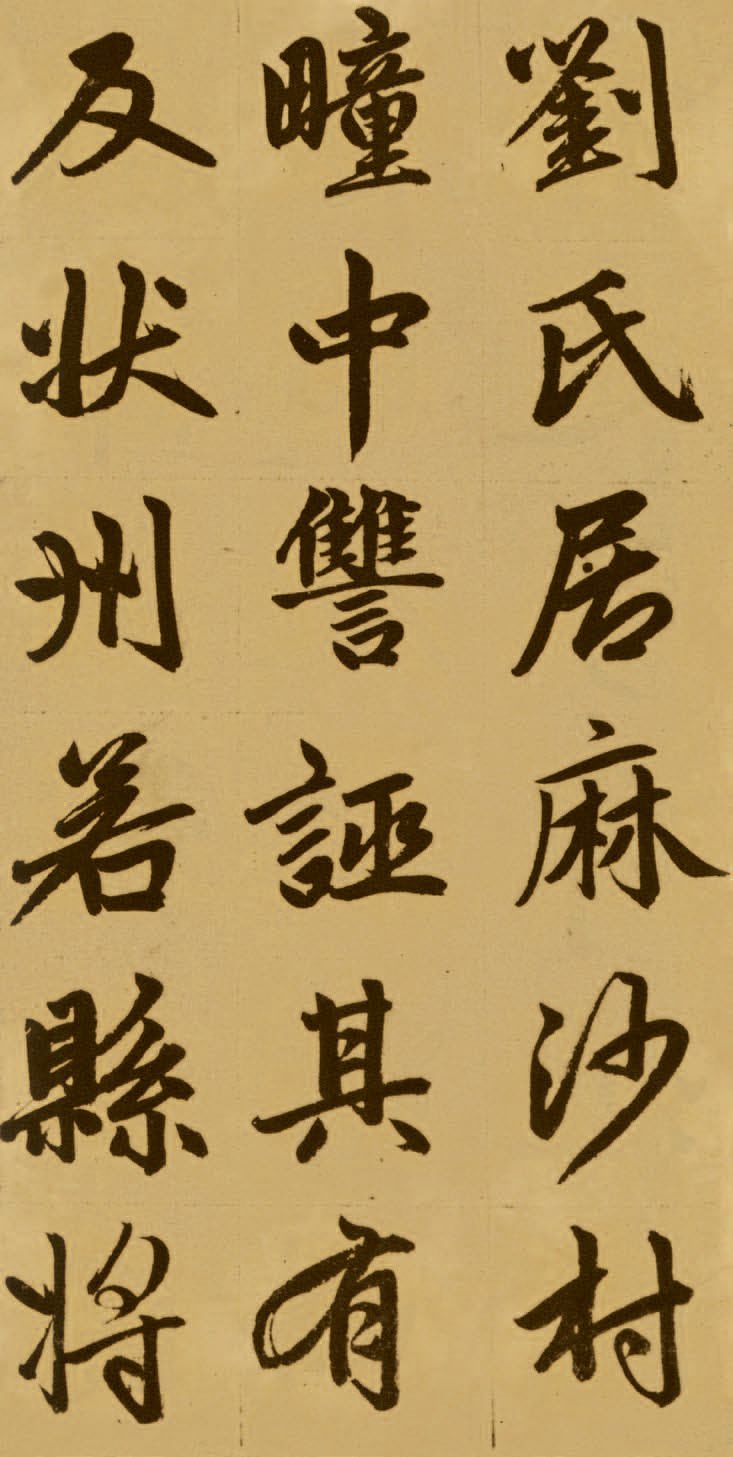 劉氏居麻沙村
疃中讐誣其有
反状州若縣將